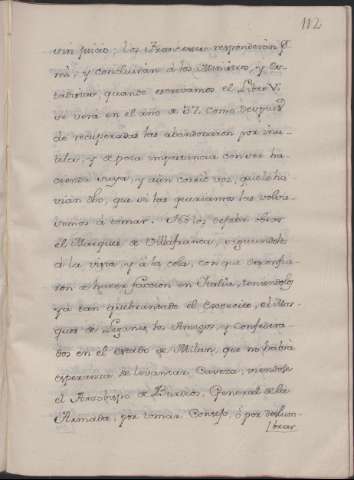 112
un juicio; los Franceses responderán p.r
mi, y concluirán á los Ministros, y Se-
cretarios, quando escrivamos el Libro V.
se verá en el año de 37. como despues
de recuperadas las abandonaron por inu-
tiles, y de poca importancia con ser ha-
cienda suya, y aún corrió voz, que le ha-
vian dho, que si las queriamos las volvie-
ramos á tomar. No los dejaba obrar
el Marques de Villafranca, siguiendoles
á la vista, y á la cola, con que desconfia-
ron de hacer faccion en Italia, teniendolo
ya tan quebrantado el Exercito, el Mar-
ques de Leganés, los Amigos, y Confedera-
dos en el estado de Milan, que no havia
esperanza de levantar Caveza, viendose
el Arzobispo de Burdeos, General de la
Armada, por tomar Consejo, ó por deslum-
brar